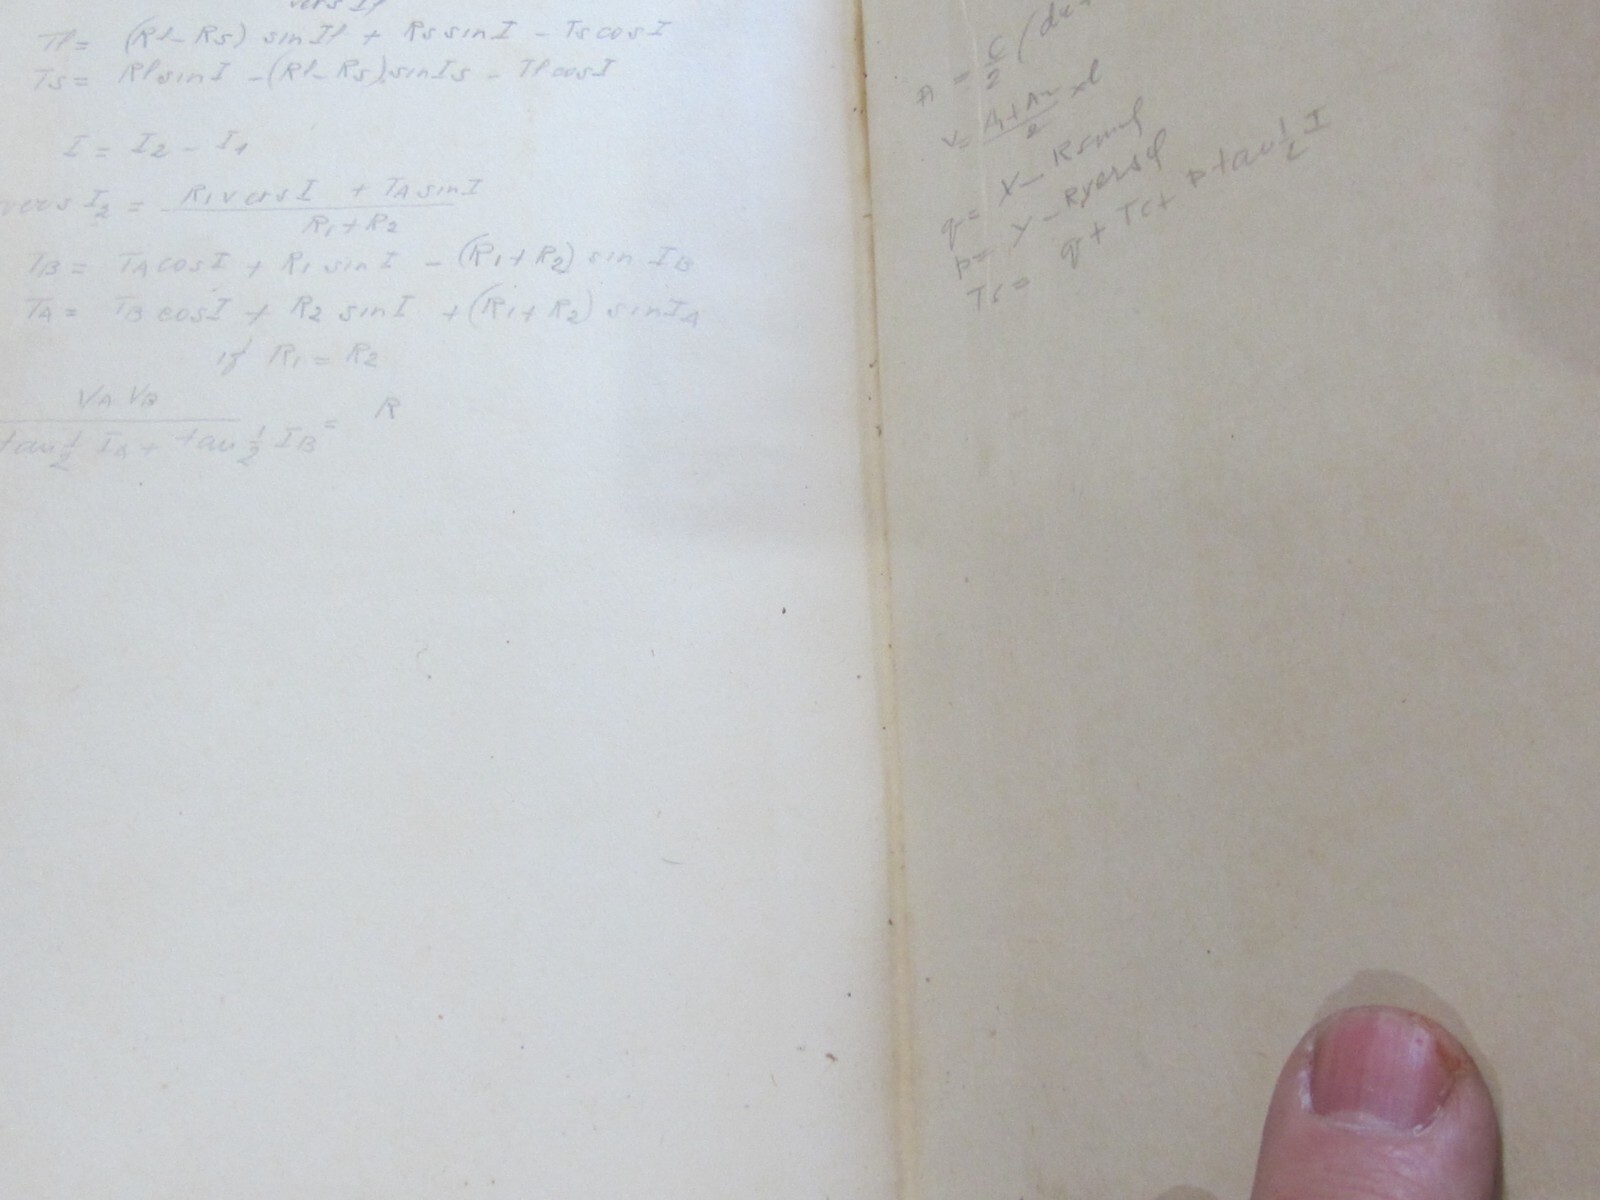 vers Il
Tl = (Rl - Rs) sin Il + Rs sin I - Ts cos I
Ts = Rl sin I - (Rl - Rs) sin Is - Tl cos I
I = I2 - I1
vers I2 = R1 vers I + TA sin I
R1 + R2
TB = TA cos I + R1 sin I - (R1 + R2) sin IB
TA = TB cos I + R2 sin I + (R1 + R2) sin IA
if R1 = R2
VA VB
tan 1/2 IA + tan 1/2 IB = R
A = C/2 (
V = A1 + A2 / 2 x l
q = X - R sin
p = Y - R vers
Ts = q + Tc + p tan 1/2 I